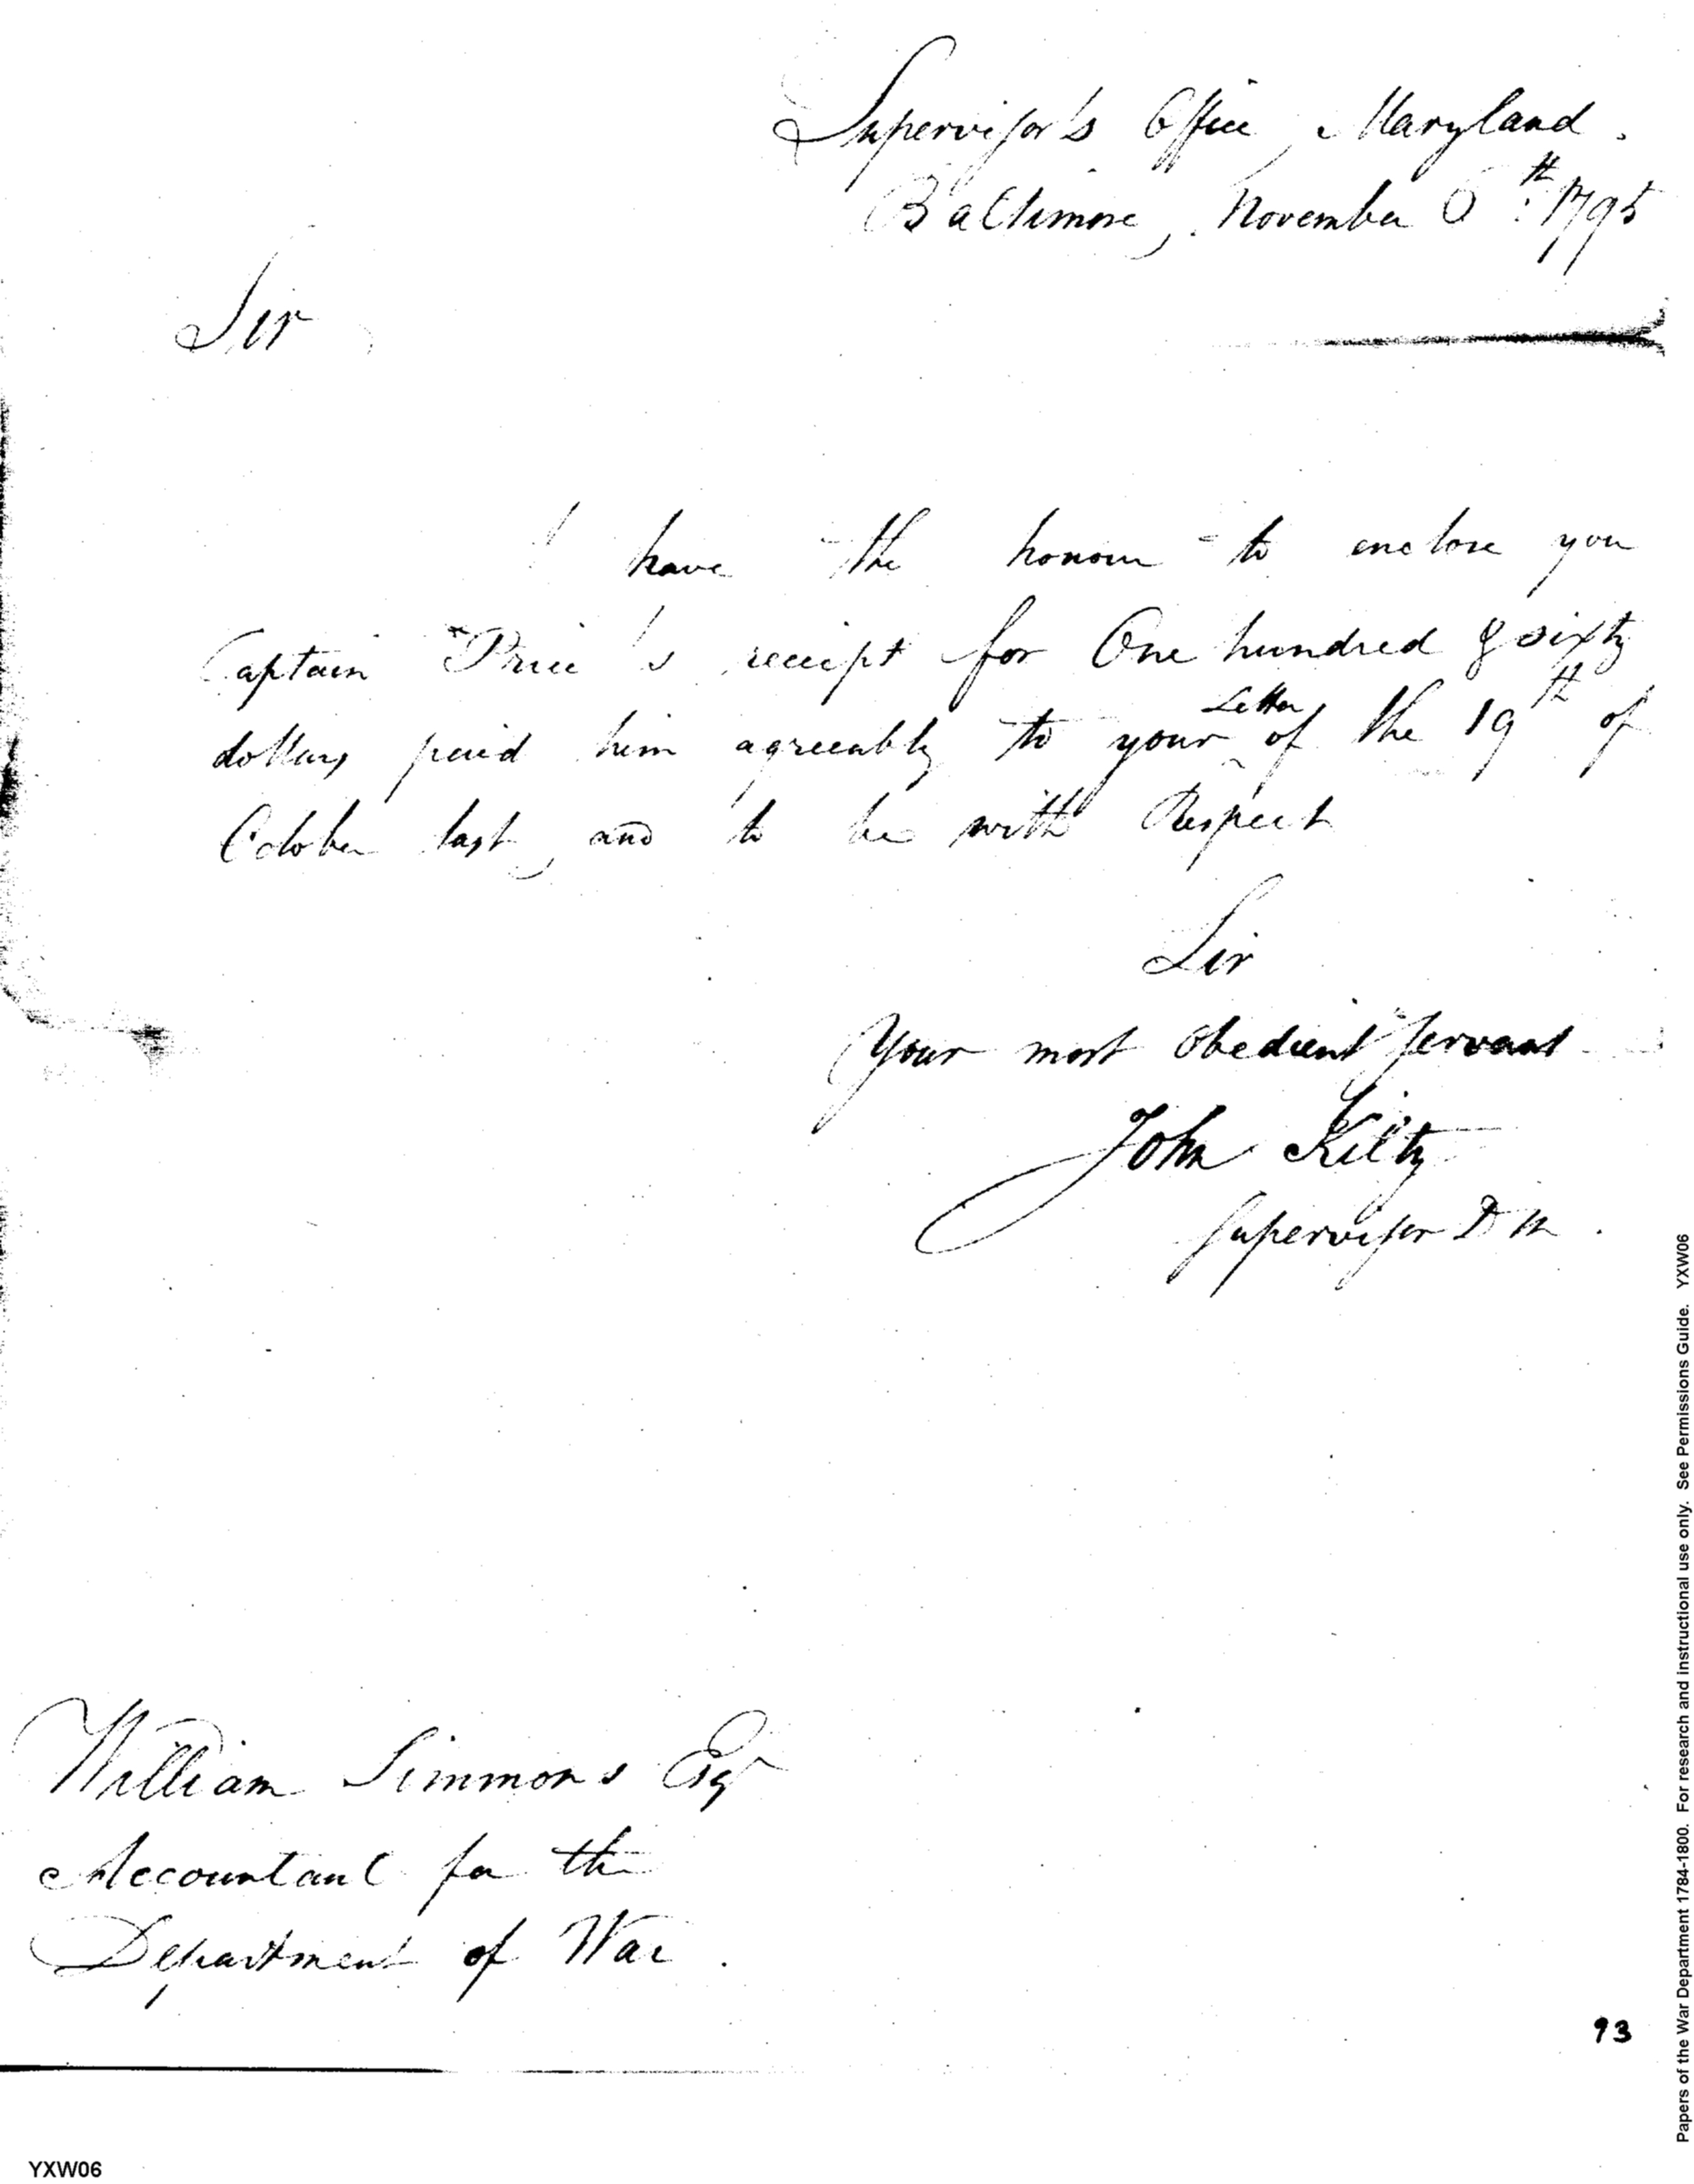 Supervisor's Office, Maryland.
Baltimore, November 6th: 1795
Sir
I have the honour to enclose you
Captain Price's receipt for One hundred & sixty
dollars paid him agreeably to your Letter of the 19th of
October last, and to be with Respect
Sir
Your most obedient servant
John Kilty
Supervisor D M.
William Simmons Esqr
Accountant for the
Department of War.
93
YXW06
Papers of the War Department 1784-1800. For research and instructional use only. See Permissions Guide. YXW06